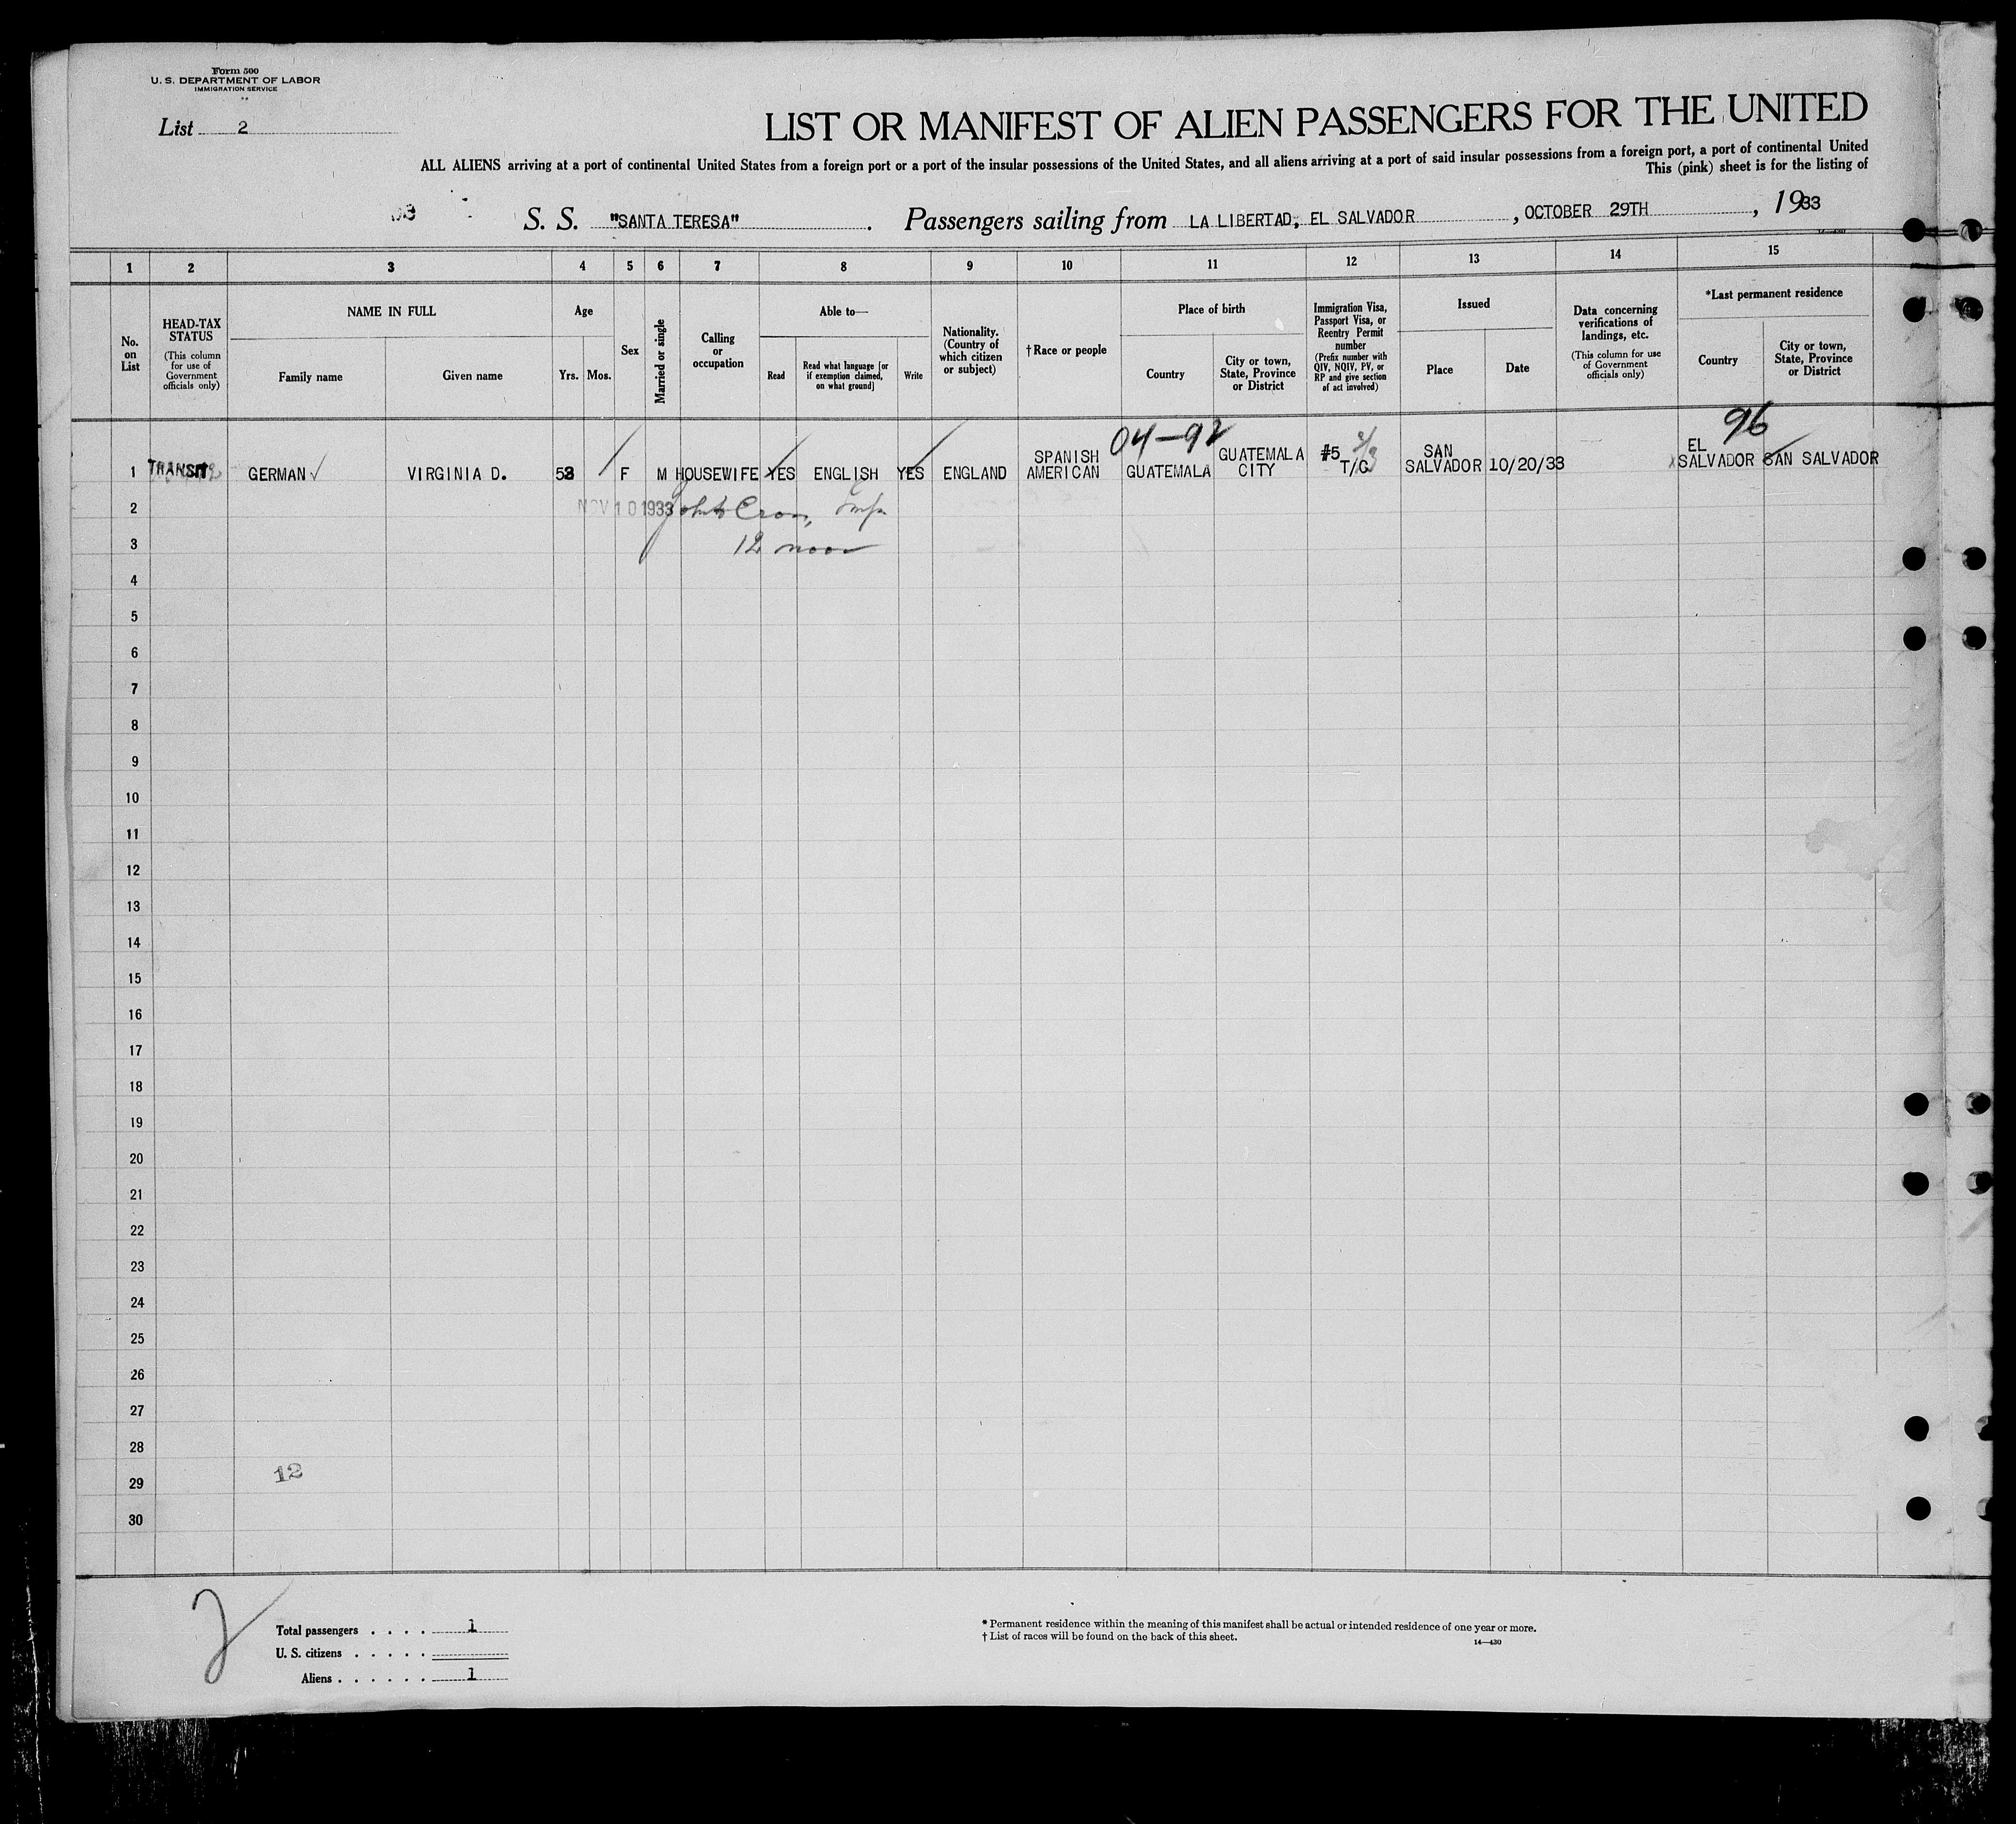 Form 500
U. S. DEPARTMENT OF LABOR
IMMIGRATION SERVICE
List 2
LIST OR MANIFEST OF ALIEN PASSENGERS FOR THE UNITED
ALL ALIENS arriving at a port of continental United States from a foreign port or a port of the insular possessions of the United States, and all aliens arriving at a port of said insular possessions from a foreign port, a port of continental United
This (pink) sheet is for the listing of
S. S. "SANTA TERESA". Passengers sailing from LA LIBERTAD, EL SALVADOR, OCTOBER 29TH, 1933
1 2 3 4 5 6 7 8 9 10 11 12 13 14 15
No. on List
HEAD-TAX STATUS
(This column for use of Government officials only)
NAME IN FULL
Family name
Given name
Age
Yrs. Mos.
Sex
Married or single
Calling or occupation
Able to—
Read
Read what language [or if exemption claimed, on what ground]
Write
Nationality. (Country of which citizen or subject)
† Race or people
Place of birth
Country
City or town, State, Province or District
Immigration Visa, Passport Visa, or Reentry Permit number
(Prefix number with QIV, NQIV, PV, or RP and give section of act involved)
Issued
Place
Date
Data concerning verifications of landings, etc.
(This column for use of Government officials only)
*Last permanent residence
Country
City or town, State, Province or District
04-92
96
1 TRANSIT GERMAN ✓ VIRGINIA D. F M HOUSEWIFE YES ENGLISH YES ENGLAND SPANISH AMERICAN GUATEMALA GUATEMALA CITY #5 T/C SAN SALVADOR 10/20/33 EL SALVADOR SAN SALVADOR
2 NOV 10 1933
3 12 noon
4
5
6
7
8
9
10
11
12
13
14
15
16
17
18
19
20
21
22
23
24
25
26
27
28
29
30
12
2
Total passengers . . . . 1
U. S. citizens . . . . .
Aliens . . . . . . 1
* Permanent residence within the meaning of this manifest shall be actual or intended residence of one year or more.
† List of races will be found on the back of this sheet.
14—430